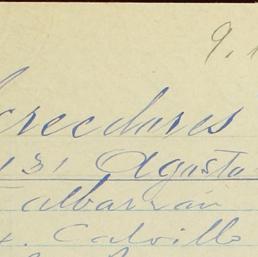 9.
creedores
31 Agosto
Albarrán
Calvillo